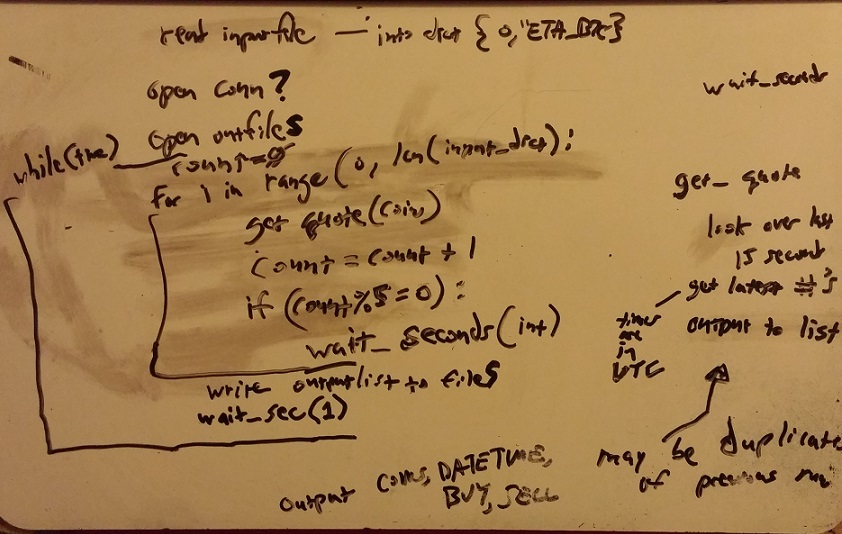 read inputfile — into dict { 0, "ETH_BTC"}
open conn?
open outfiles
while(true)
count=0
for i in range (0, len(input_dict):
get quote(coin)
count = count + 1
if (count%5=0):
wait_seconds(int)
write outputlist to files
wait_sec(1)
output coins, DATETIME,
BUY, SELL
wait_seconds
get_quote
look over last
15 second
get latest #'s
times
are
in
UTC
output to list
may be duplicate
of previous run